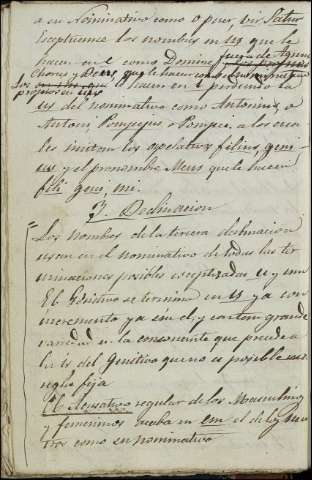 a su Nominativo como o puer, vir Satur
Exceptuanse los nombres en us que le
hacen en e como Domine fuera de Agnus
Chorus y Deus, que le hacen
Los propios en ius hacen en i perdiendo la
us del nominativo como Antonius, o
Antoni Pompejus o Pompei, a los cua
les imitan los apelativos filius, geni
us, y el pronombre Meus que le hacen
fili geni, mi.
3. Declinacion
Los nombres de la tercera declinacion
usan en el nominativo de todas las ter
minaciones posibles exceptuadas u y um
El Genitivo se termina en is ya con
incremento ya sin el, y con tan grande
variedad en la consonante que precede a
la is del Genitivo que no es posible dar
regla fija
El Acusativo regular de los Masculinos
y femeninos acaba en em el de los neu
tros como su nominativo